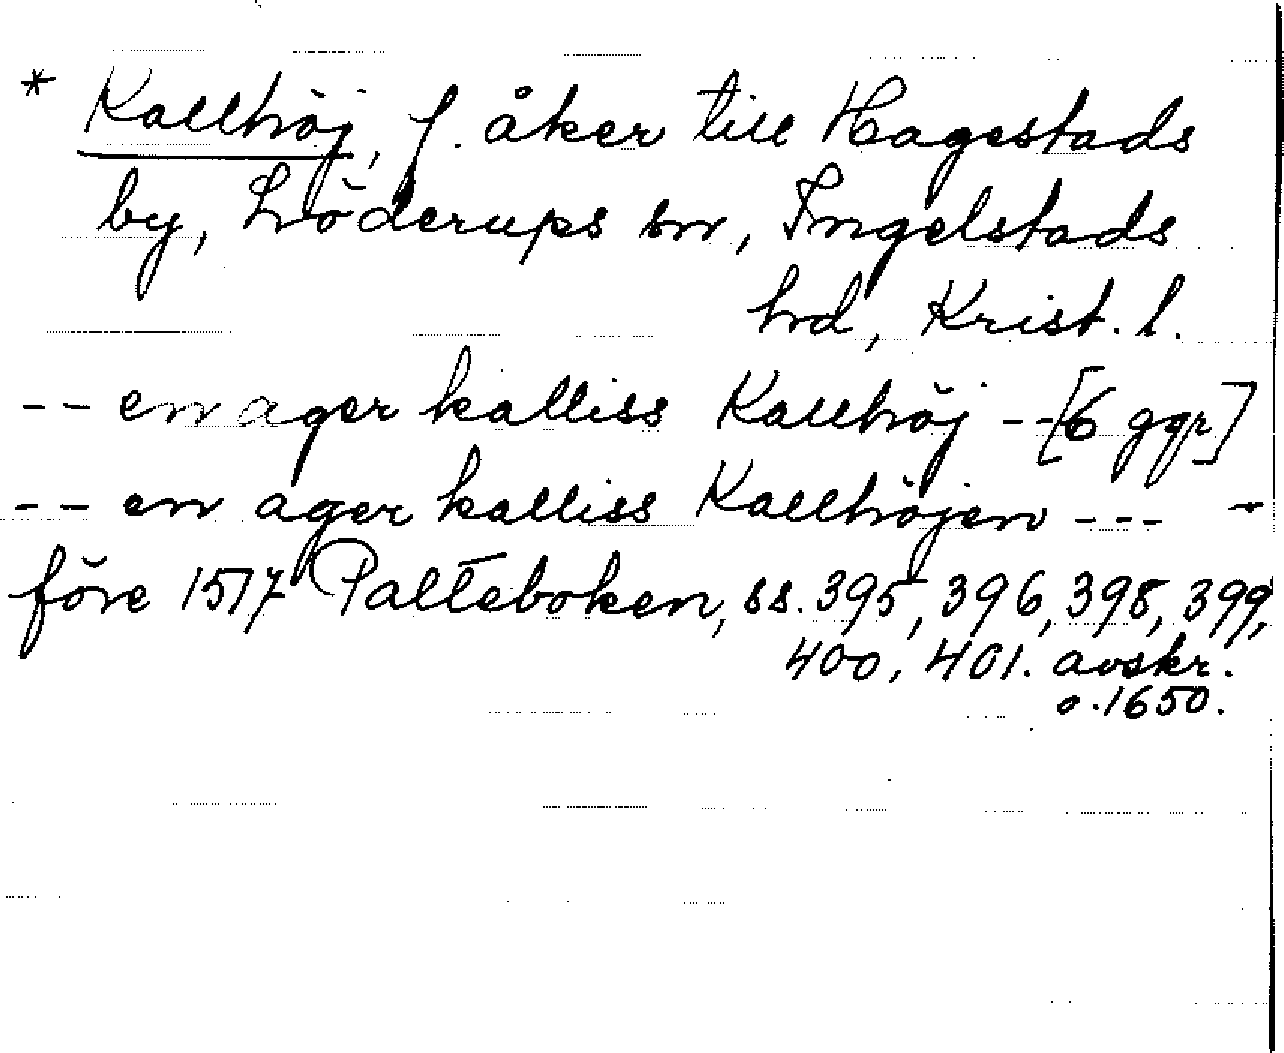 * Kallhöj, f. åker till Hagestads
by, Löderups sn, Ingelstads
hrd, Krist. l.
-- en ager kalliss Kallhöj --[6 ggr]
-- en ager kalliss Kallhöjen --- -
före 1517 Palteboken, ss. 395, 396, 398, 399,
400, 401. avskr.
o. 1650.